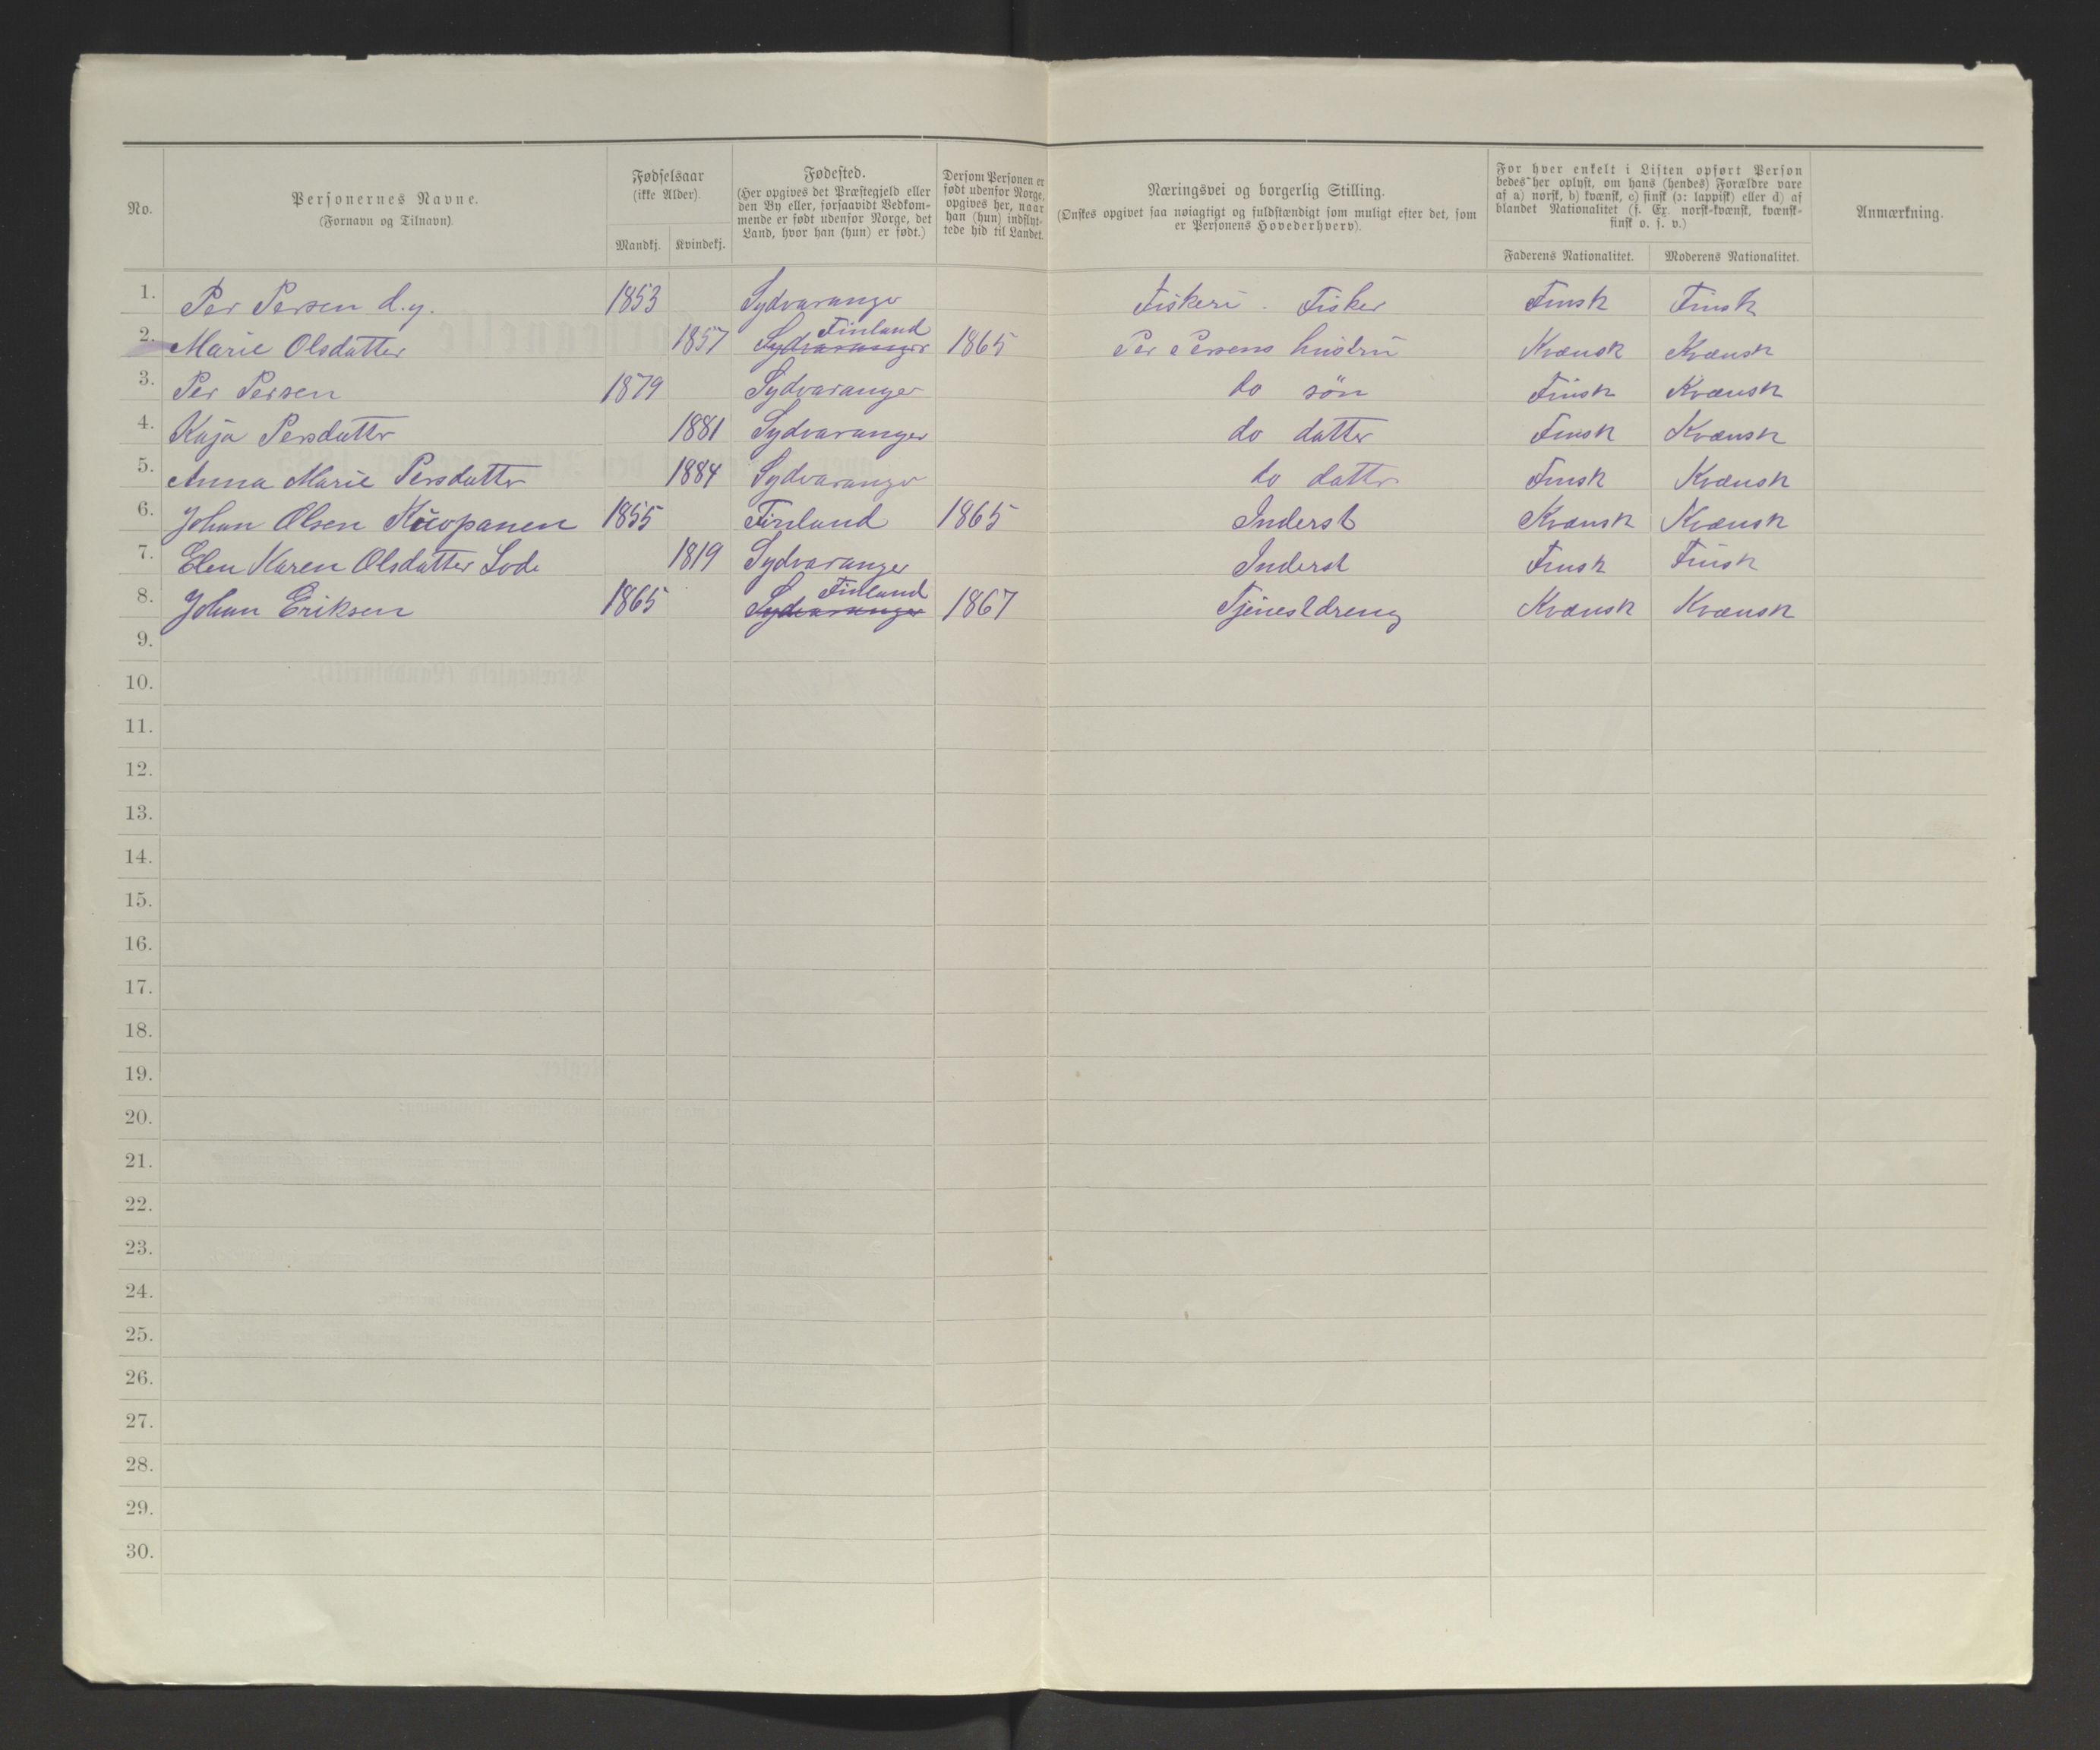 No.
Personernes Navne.
(Fornavn og Tilnavn).
Fødselsaar
(ikke Alder).
Mandkj. Kvindekj.
Fødested.
(Her opgives det Præstegjeld eller
den By eller, forsaavidt Vedkom-
mende er født udenfor Norge, det
Land, hvor han (hun) er født.)
Dersom Personen er
født udenfor Norge,
opgives her, naar
han (hun) indflyt-
tede hid til Landet.
Næringsvei og borgerlig Stilling.
(Ønskes opgivet saa nøiagtigt og fuldstændigt som muligt efter det, som
er Personens Hovederhverv).
For hver enkelt i Listen opført Person
bedes her oplyst, om hans (hendes) Forældre vare
af a) norsk, b) kvænsk, c) finsk (ɔ: lappisk) eller d) af
blandet Nationalitet (f. Ex. norsk-kvænsk, kvænsk-
finsk o. s. v.)
Faderens Nationalitet. Moderens Nationalitet.
Anmærkning.
1. Per Persen d.y. 1853 Sydvaranger Fiskeri. Fisker Finsk Finsk
2. Marie Olsdatter 1857 Sydvaranger Finland 1865 Per Persens hustru Kvænsk Kvænsk
3. Per Persen 1879 Sydvaranger do søn Finsk Kvænsk
4. Kaja Persdatter 1881 Sydvaranger do datter Finsk Kvænsk
5. Anna Marie Persdatter 1884 Sydvaranger do datter Finsk Kvænsk
6. Johan Olsen 1855 Finland 1865 Inderst Kvænsk Kvænsk
7. Elen Karen Olsdatter Lode 1819 Sydvaranger Inderst Finsk Finsk
8. Johan Eriksen 1865 Sydvaranger Finland 1867 Tjenestdreng Kvænsk Kvænsk
9.
10.
11.
12.
13.
14.
15.
16.
17.
18.
19.
20.
21.
22.
23.
24.
25.
26.
27.
28.
29.
30.